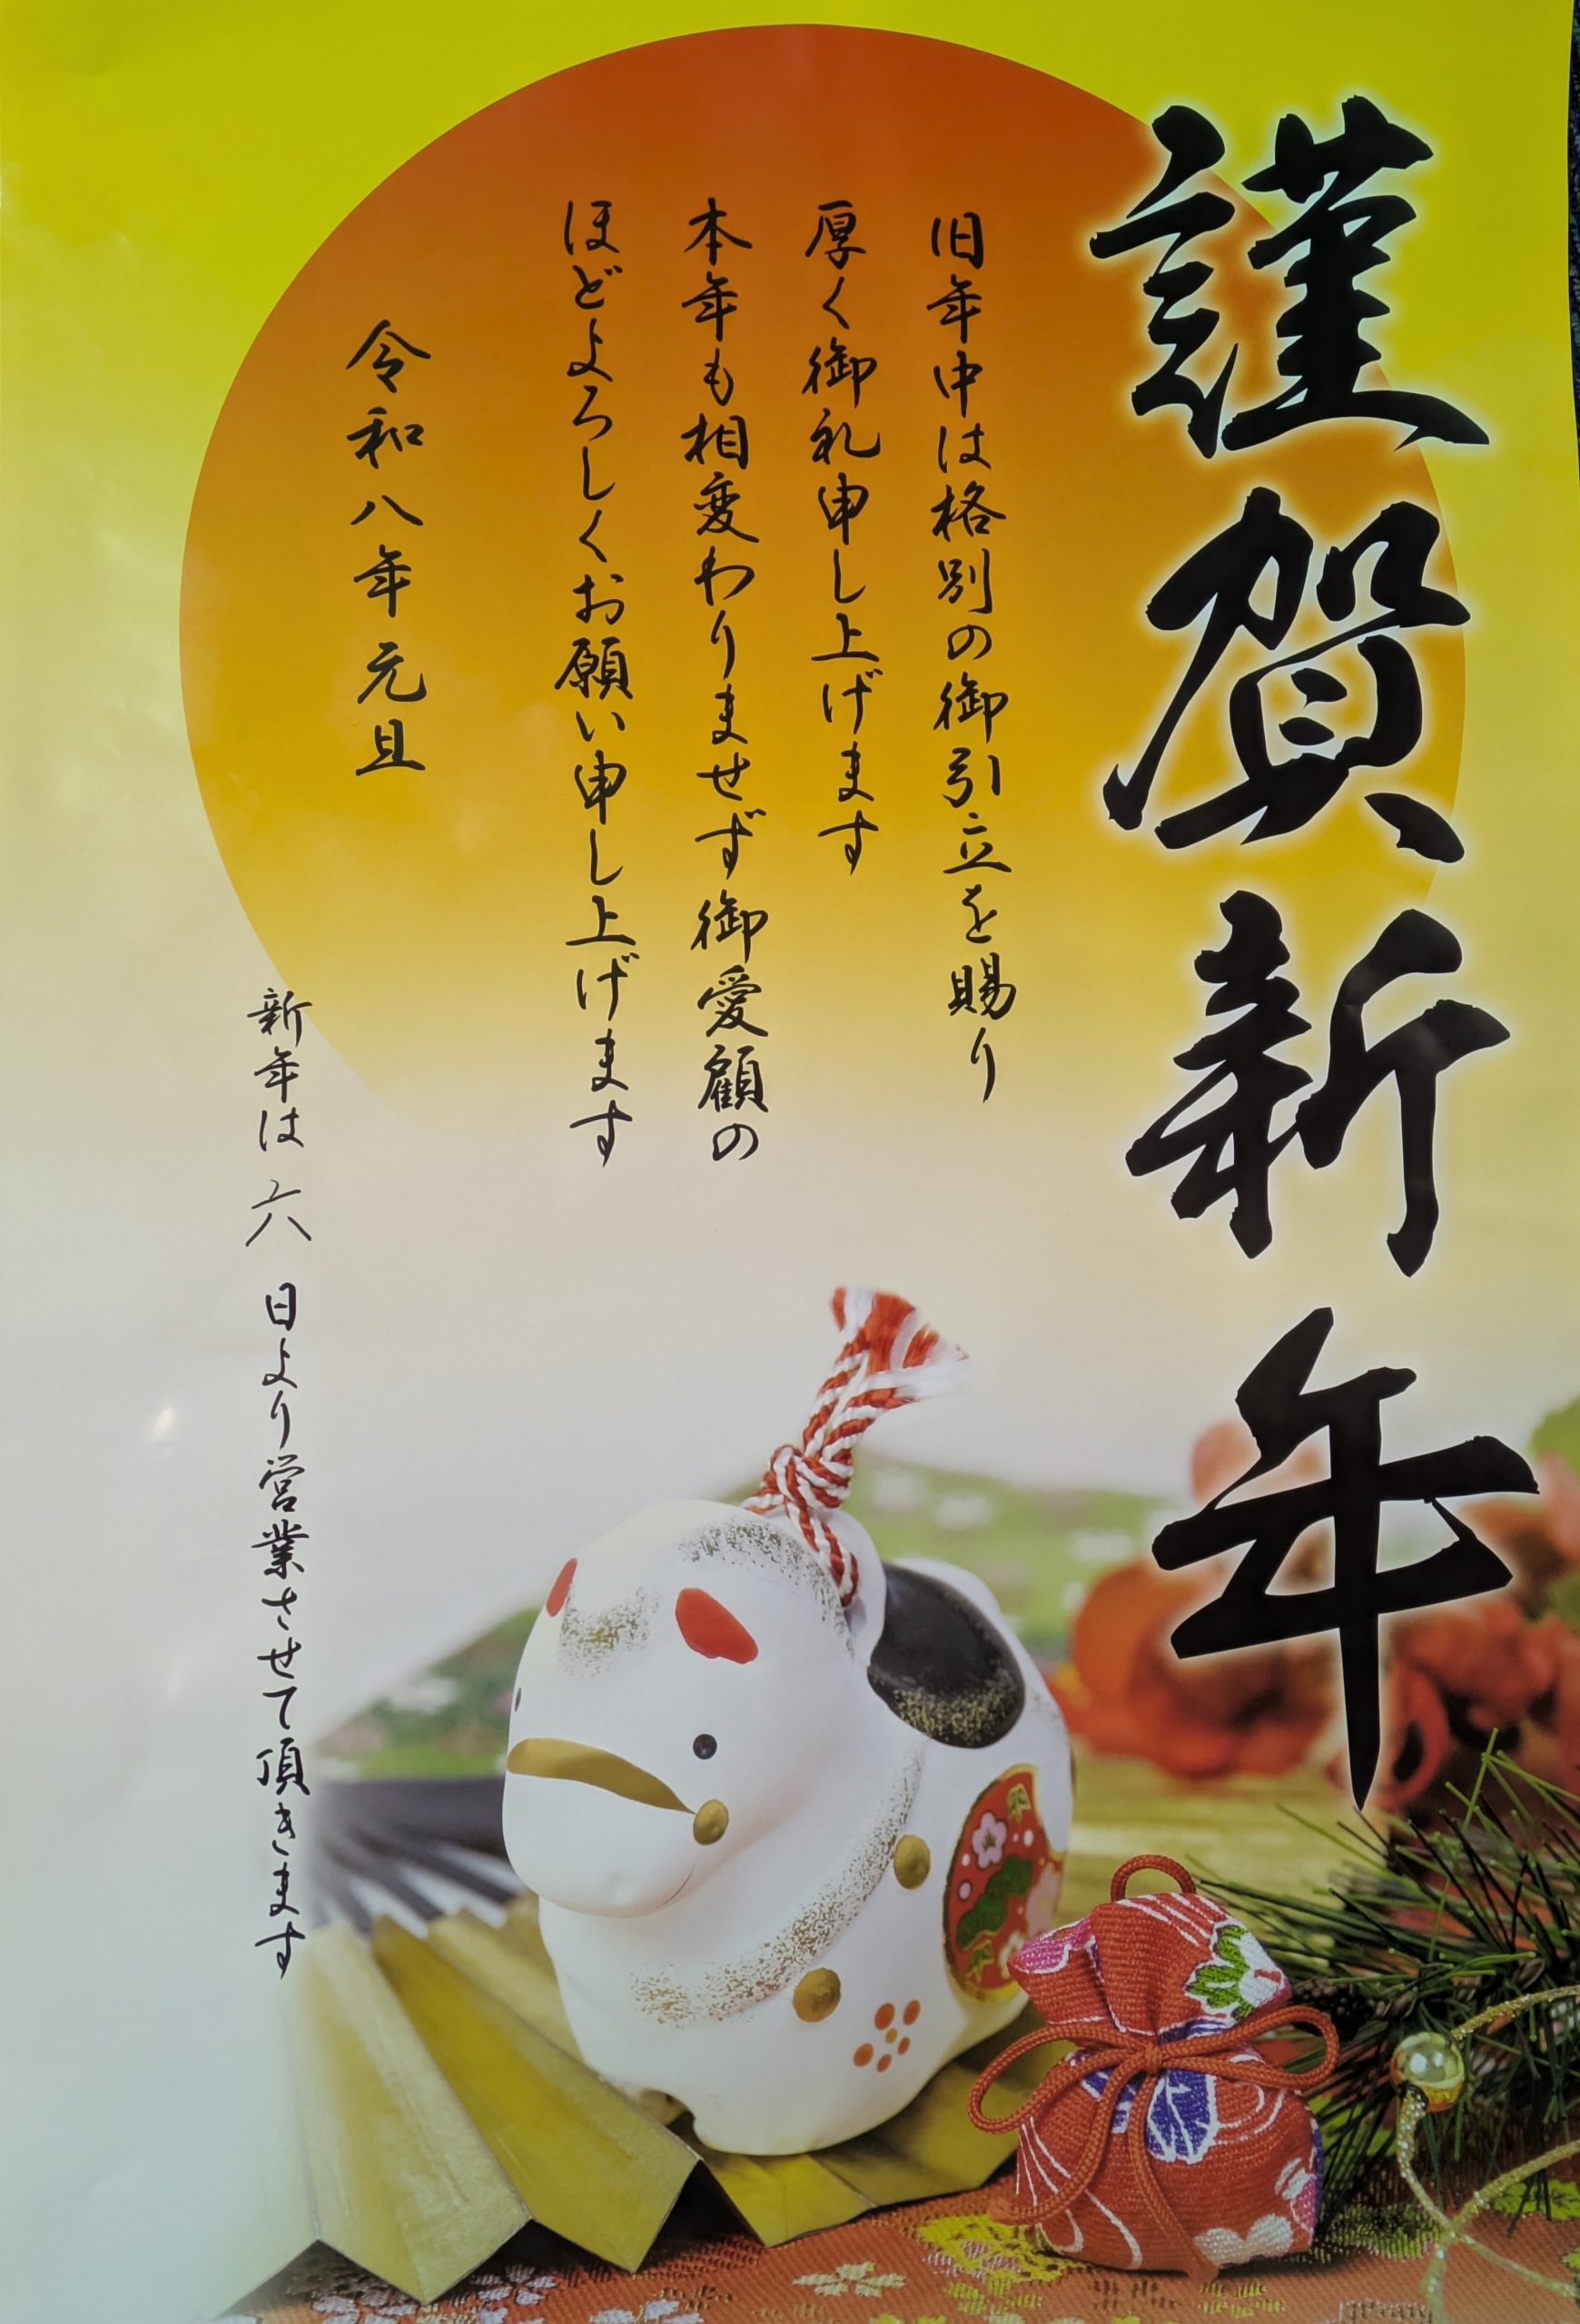 謹賀新年
旧年中は格別の御引立を賜り
厚く御礼申し上げます
本年も相変わりませず御愛顧の
ほどよろしくお願い申し上げます
令和八年元旦
新年は 六 日より営業させて頂きます